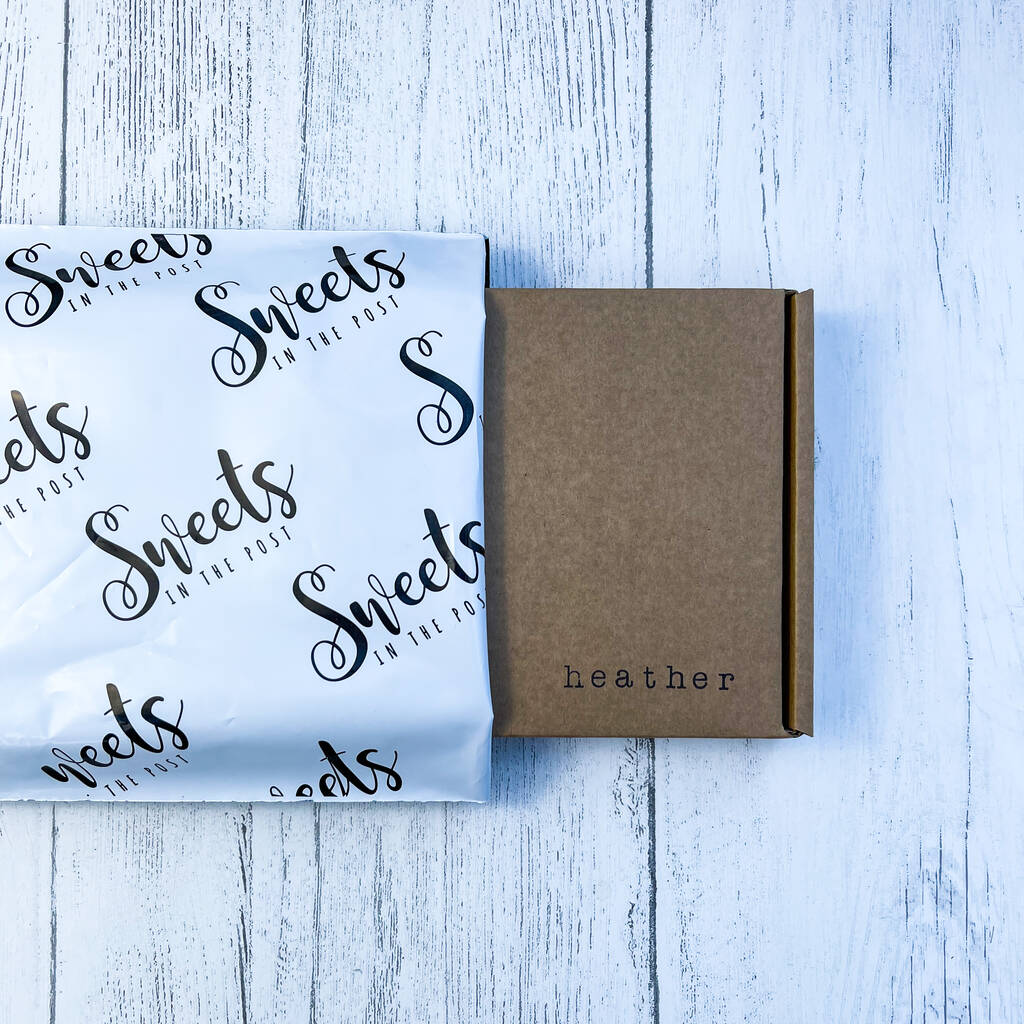 Sweets
IN THE POST
Sweets
IN THE POST
S
eets
HE POST
Sweets
IN THE POST
Sweets
IN THE POS
weets
THE POST
eets
heather